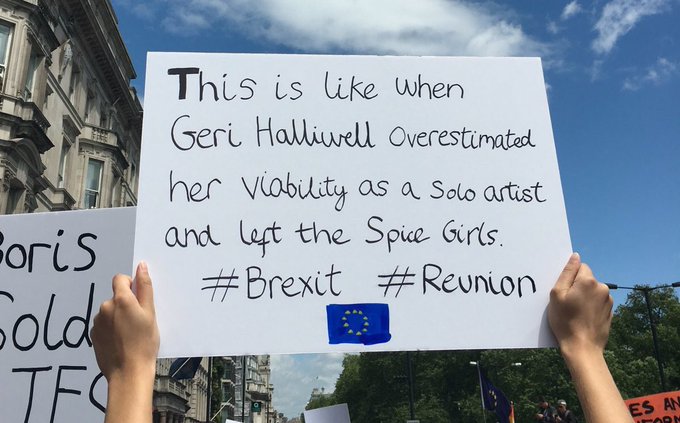 This is like when
Geri Halliwell overestimated
her viability as a solo artist
and left the Spice Girls.
#Brexit #Reunion
Boris
Sold
ES AN